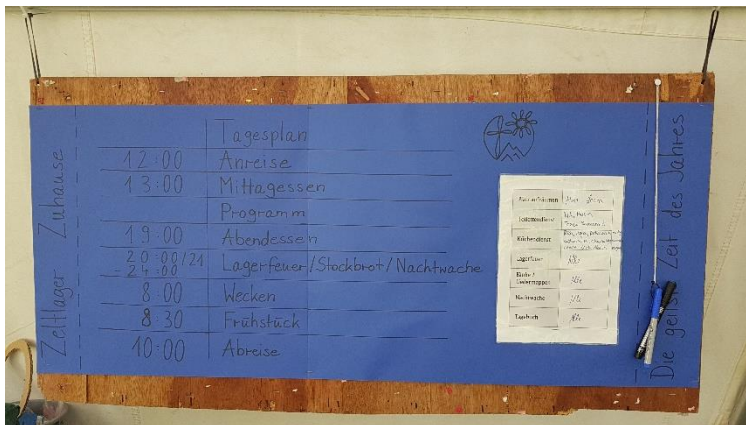 Zeltlager Zuhause
Tagesplan
12:00 Anreise
13:00 Mittagessen
Programm
19:00 Abendessen
20:00/21
- 24:00 Lagerfeuer/Stockbrot/Nachtwache
8:00 Wecken
8:30 Frühstück
10:00 Abreise
Toilettendienst
Küchendienst
Lagerfeuer
Nachtwache
Tagebuch
Die geilste Zeit des Jahres